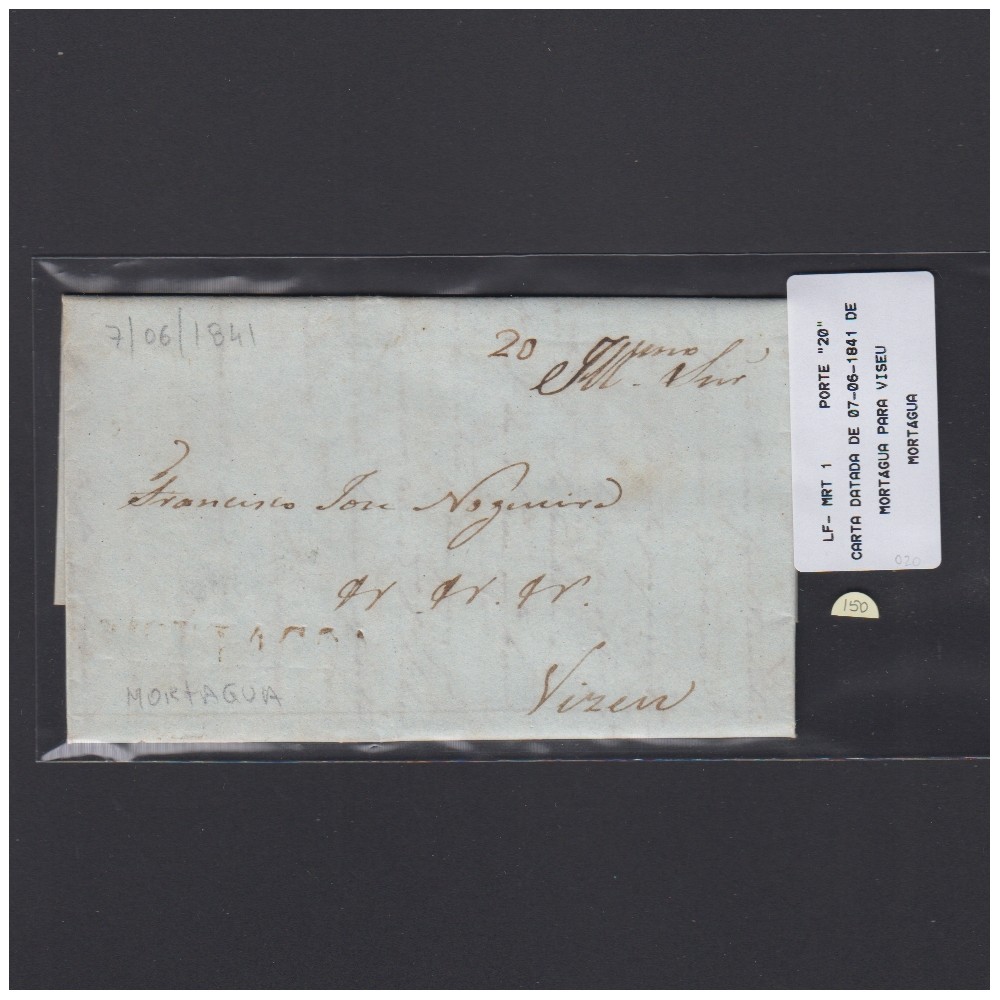 7/06/1841
20
Illmo Snr
Francisco Jose Nogueira
&r &r. &r.
MORTAGUA
Vizeu
LF- MRT 1 PORTE "20"
CARTA DATADA DE 07-06-1841 DE
MORTÁGUA PARA VISEU
MORTÁGUA
020
150